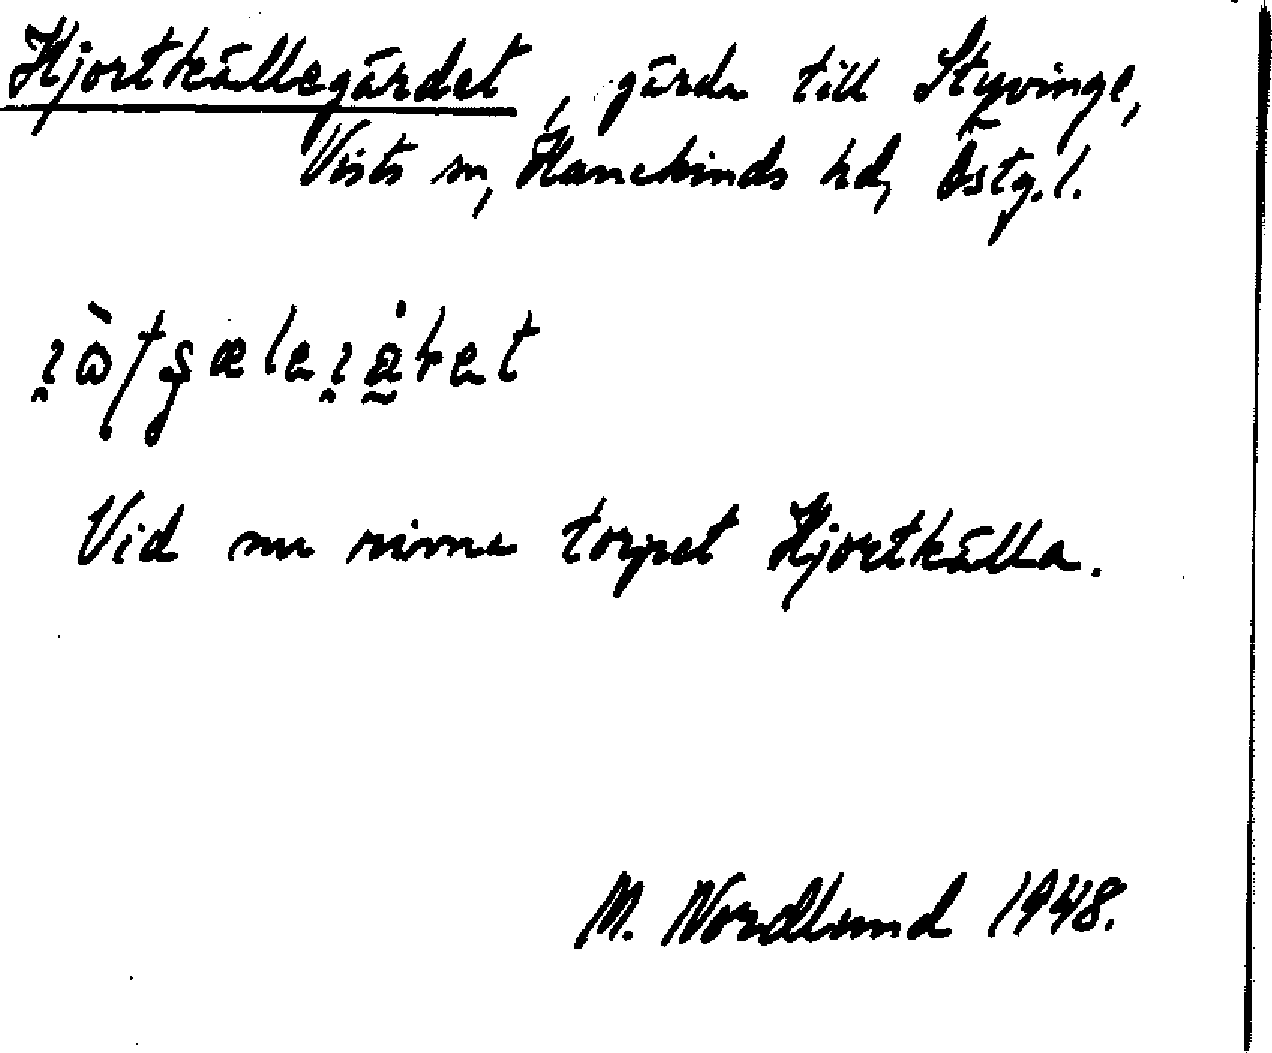 Hjortkällegärdet, gärde till Styvinge,
Vists sn, Hanekinds hd, Östg. l.
Vid nu rivna torpet Hjortkälla.
M. Nordlund 1948.